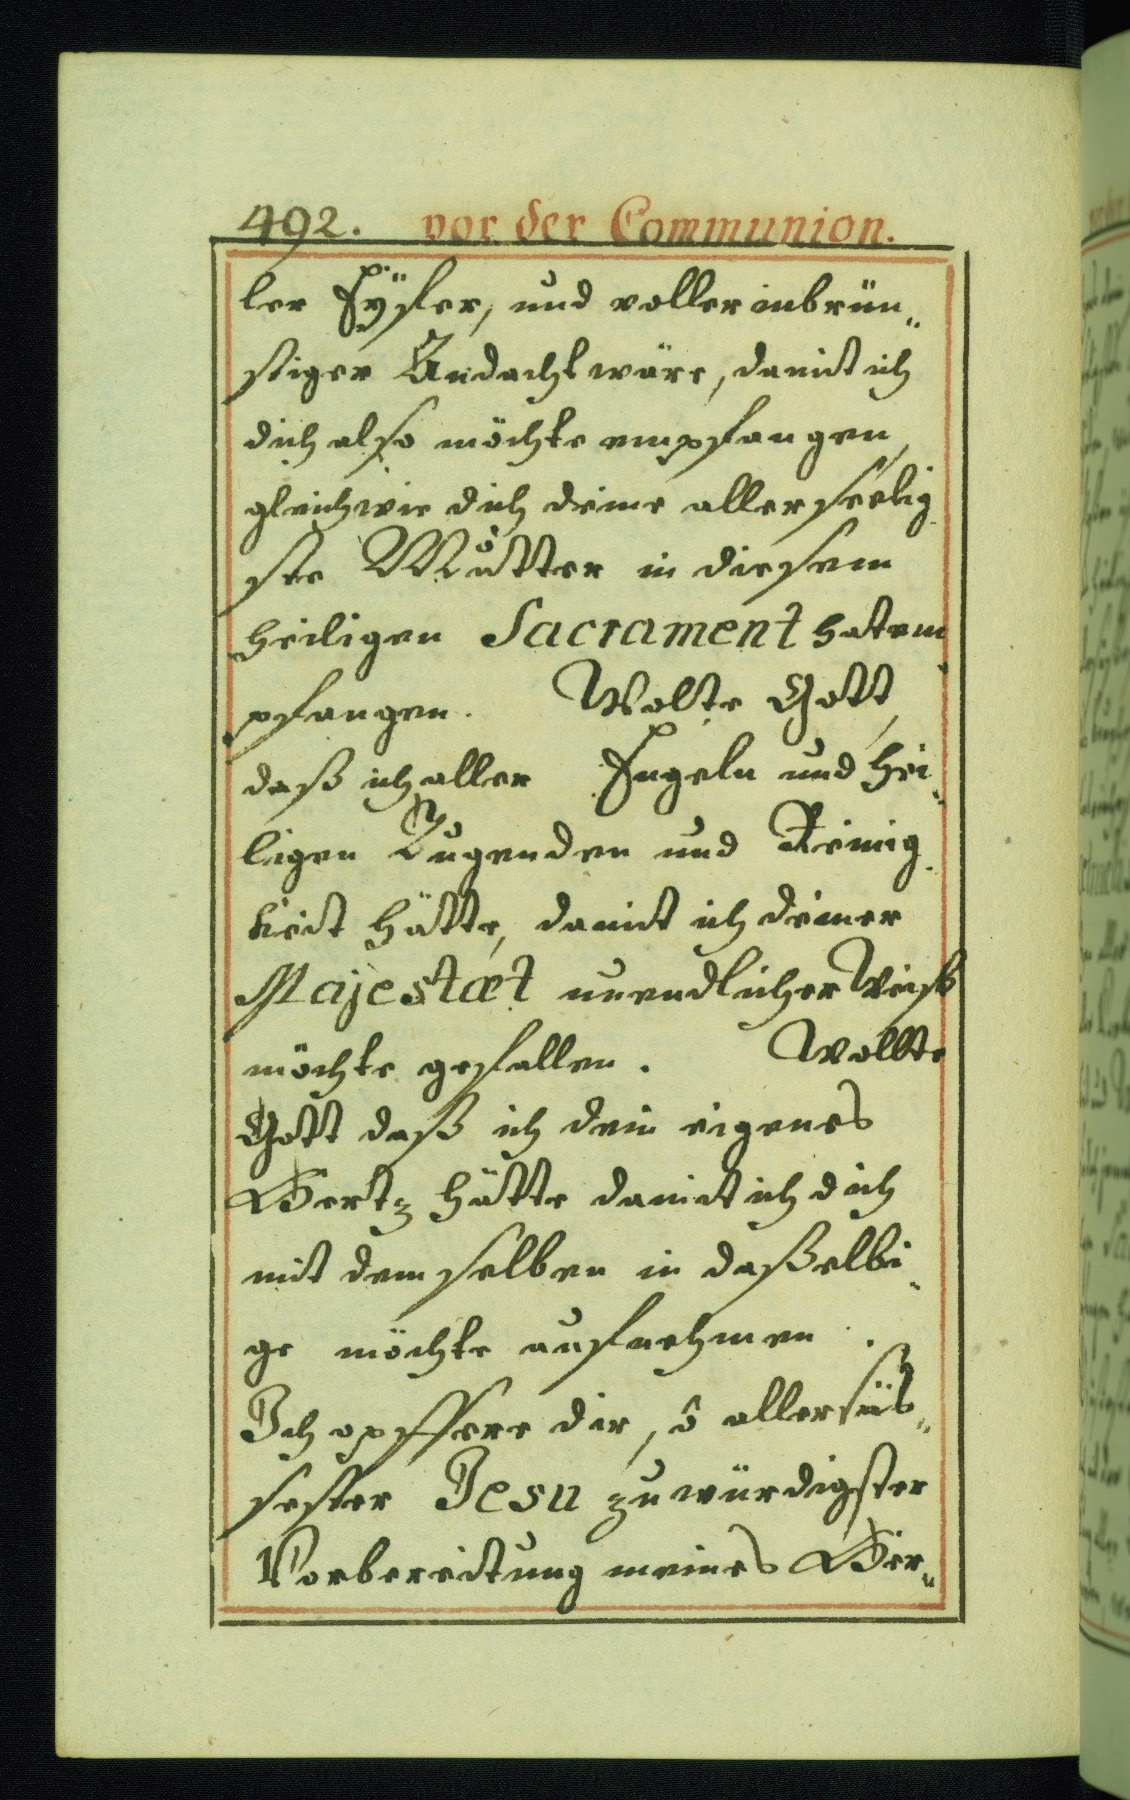 492. vor der Communion.
ler Eÿfer, und voller inbrün„
stiger Andacht wäre, damit ich
dich also möchte empfangen,
gleichwie dich deine allerseelig
ste Mutter in diesem
heiligen Sacrament hat em„
pfangen. Wolte Gott,
daß ich aller Engeln und Hei„
ligen Tugenden und Reinig„
keit hätte, damit ich deiner
Majestæt unendlicher Weiß
möchte gefallen. Wollte
Gott daß ich dein eigenes
Hertz hätte damit ich dich
mit dem selben in daßelbi„
ge möchte aufnehmen.
Ich opffere dir, ô allersüs„
sester Jesu zu würdigster
Vorbereitung meines Her„